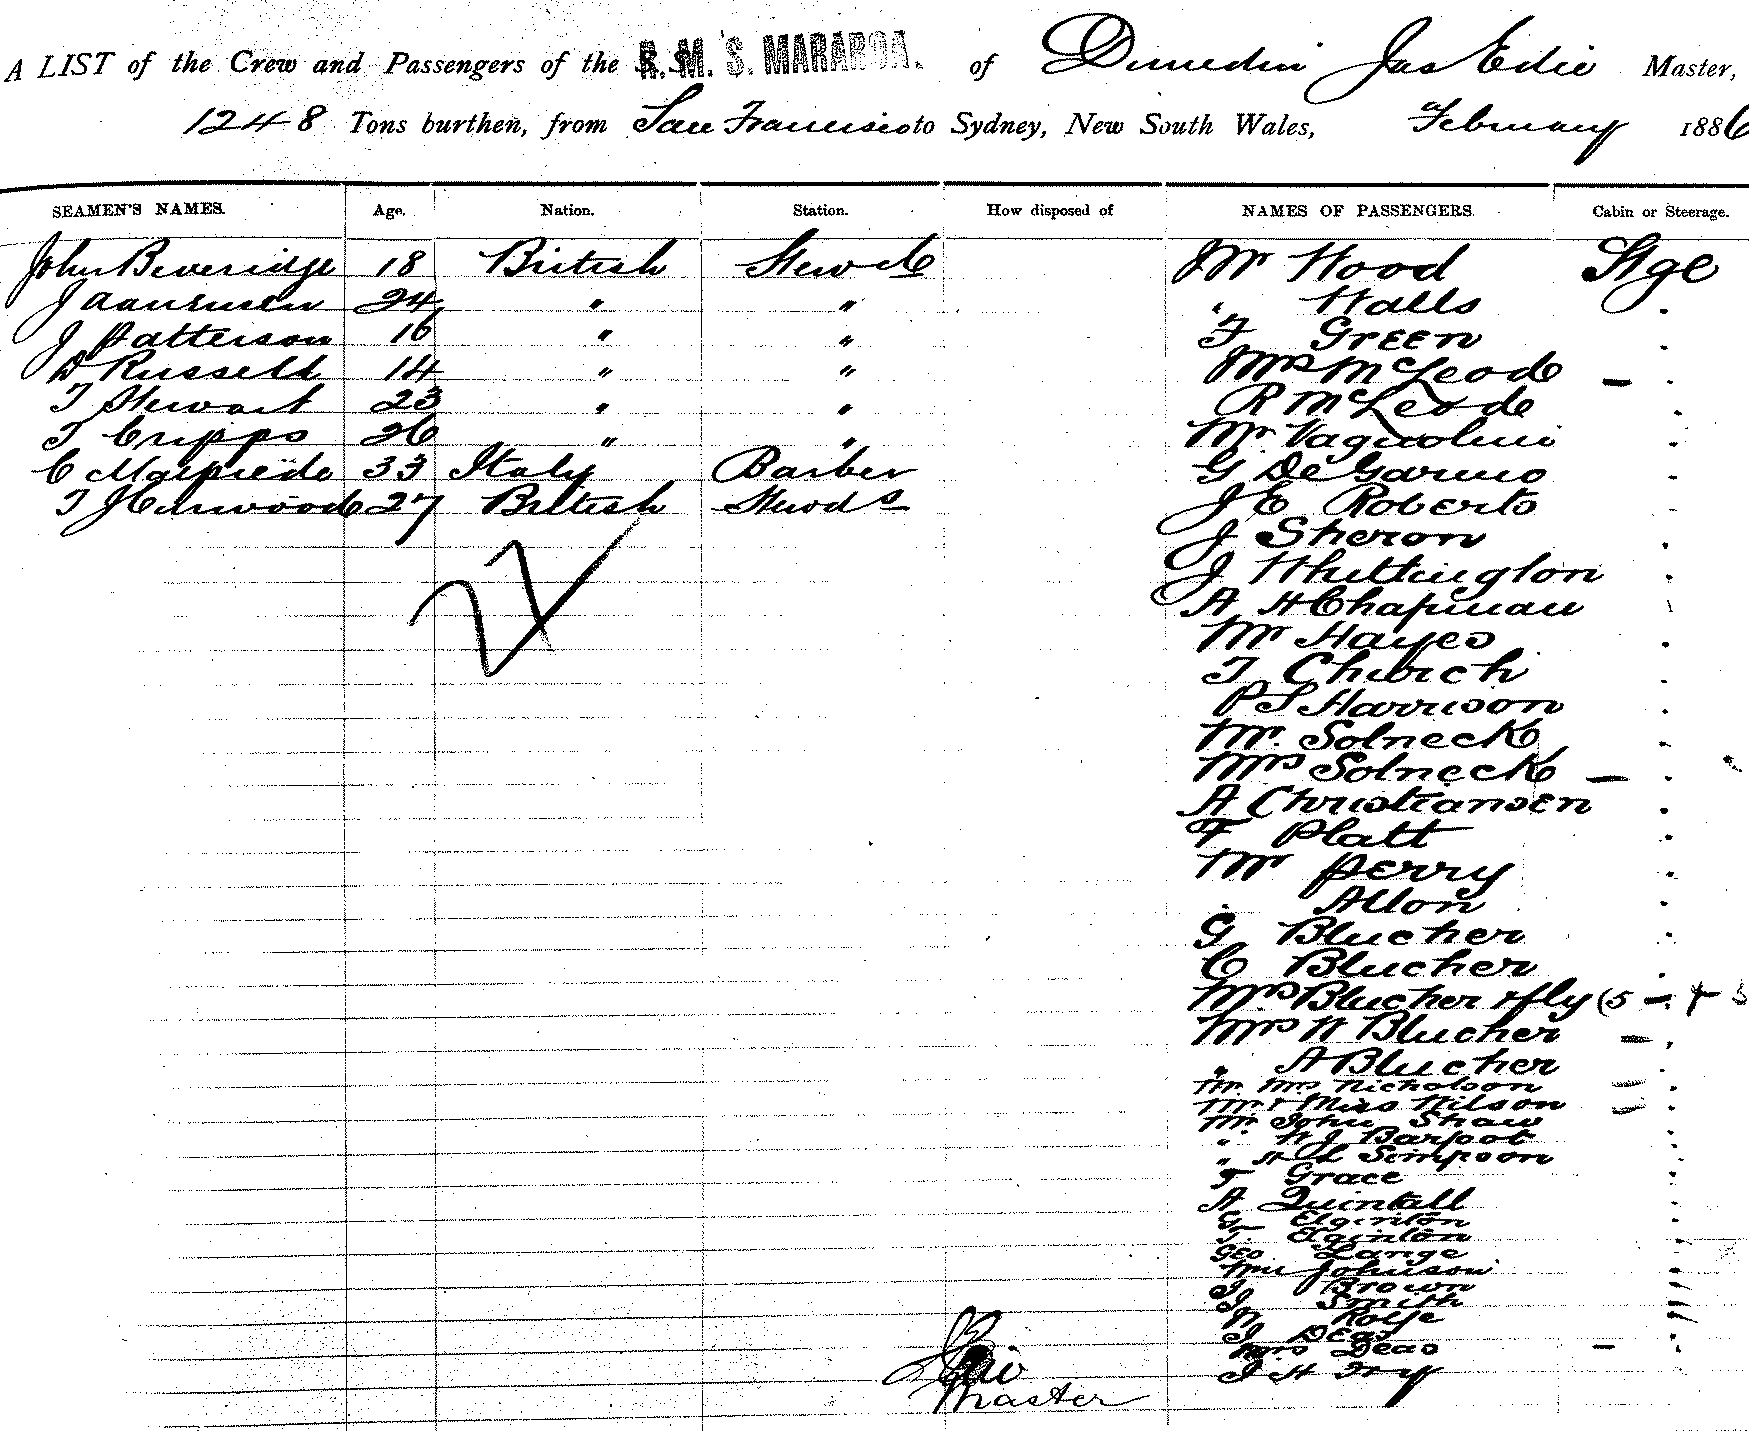 A LIST of the Crew and Passengers of the R.M.S. MARAROA. of Dunedin Jas Edie Master,
1248 Tons burthen, from San Francisco to Sydney, New South Wales, February 1886
SEAMEN'S NAMES. Age. Nation. Station. How disposed of NAMES OF PASSENGERS. Cabin or Steerage.
John Beveridge 18 British Mr Hood Stge
J 24 " " " Halls .
J Patterson 16 " " F Green .
D Russell 14 " " Mrs McLeode – .
T Stewart 23 " " R McLeode .
T Cripps 26 " " Mr
C 33 Italy Barber G De Garmo .
T J 27 British Stewds J E Roberts
J Sheron .
J Whittington .
A H Chapman
Mr Hayes .
T Church .
P S Harrison .
Mr. Solneck .
Mrs Solneck – .
A Christiansen .
F Platt .
Mr Perry .
. Allon .
G Blucher .
C Blucher .
Mrs Blucher & fly (5 –
Mrs H Blucher – .
" A Blucher
Mr Mrs Nicholson – .
Mr & Miss Nilson – .
Mr John Shaw .
" H J Barfoot .
" H L Simpson .
F Grace
A Quintall
G Elginton
T. Elginton
Geo Lange
Wm Johnson
J Brown
J Smith
N Rolfe
J Deas
Mrs Deas –
J H
Master
22